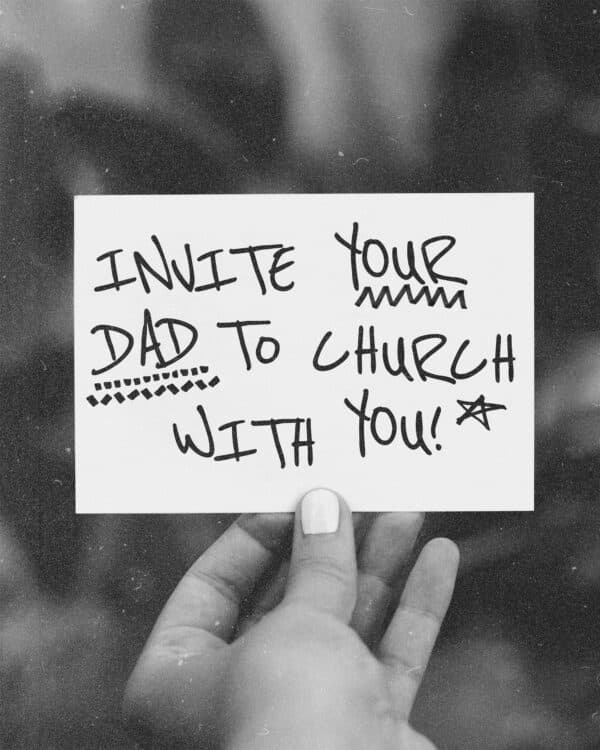 INVITE YOUR
DAD TO CHURCH
WITH YOU!